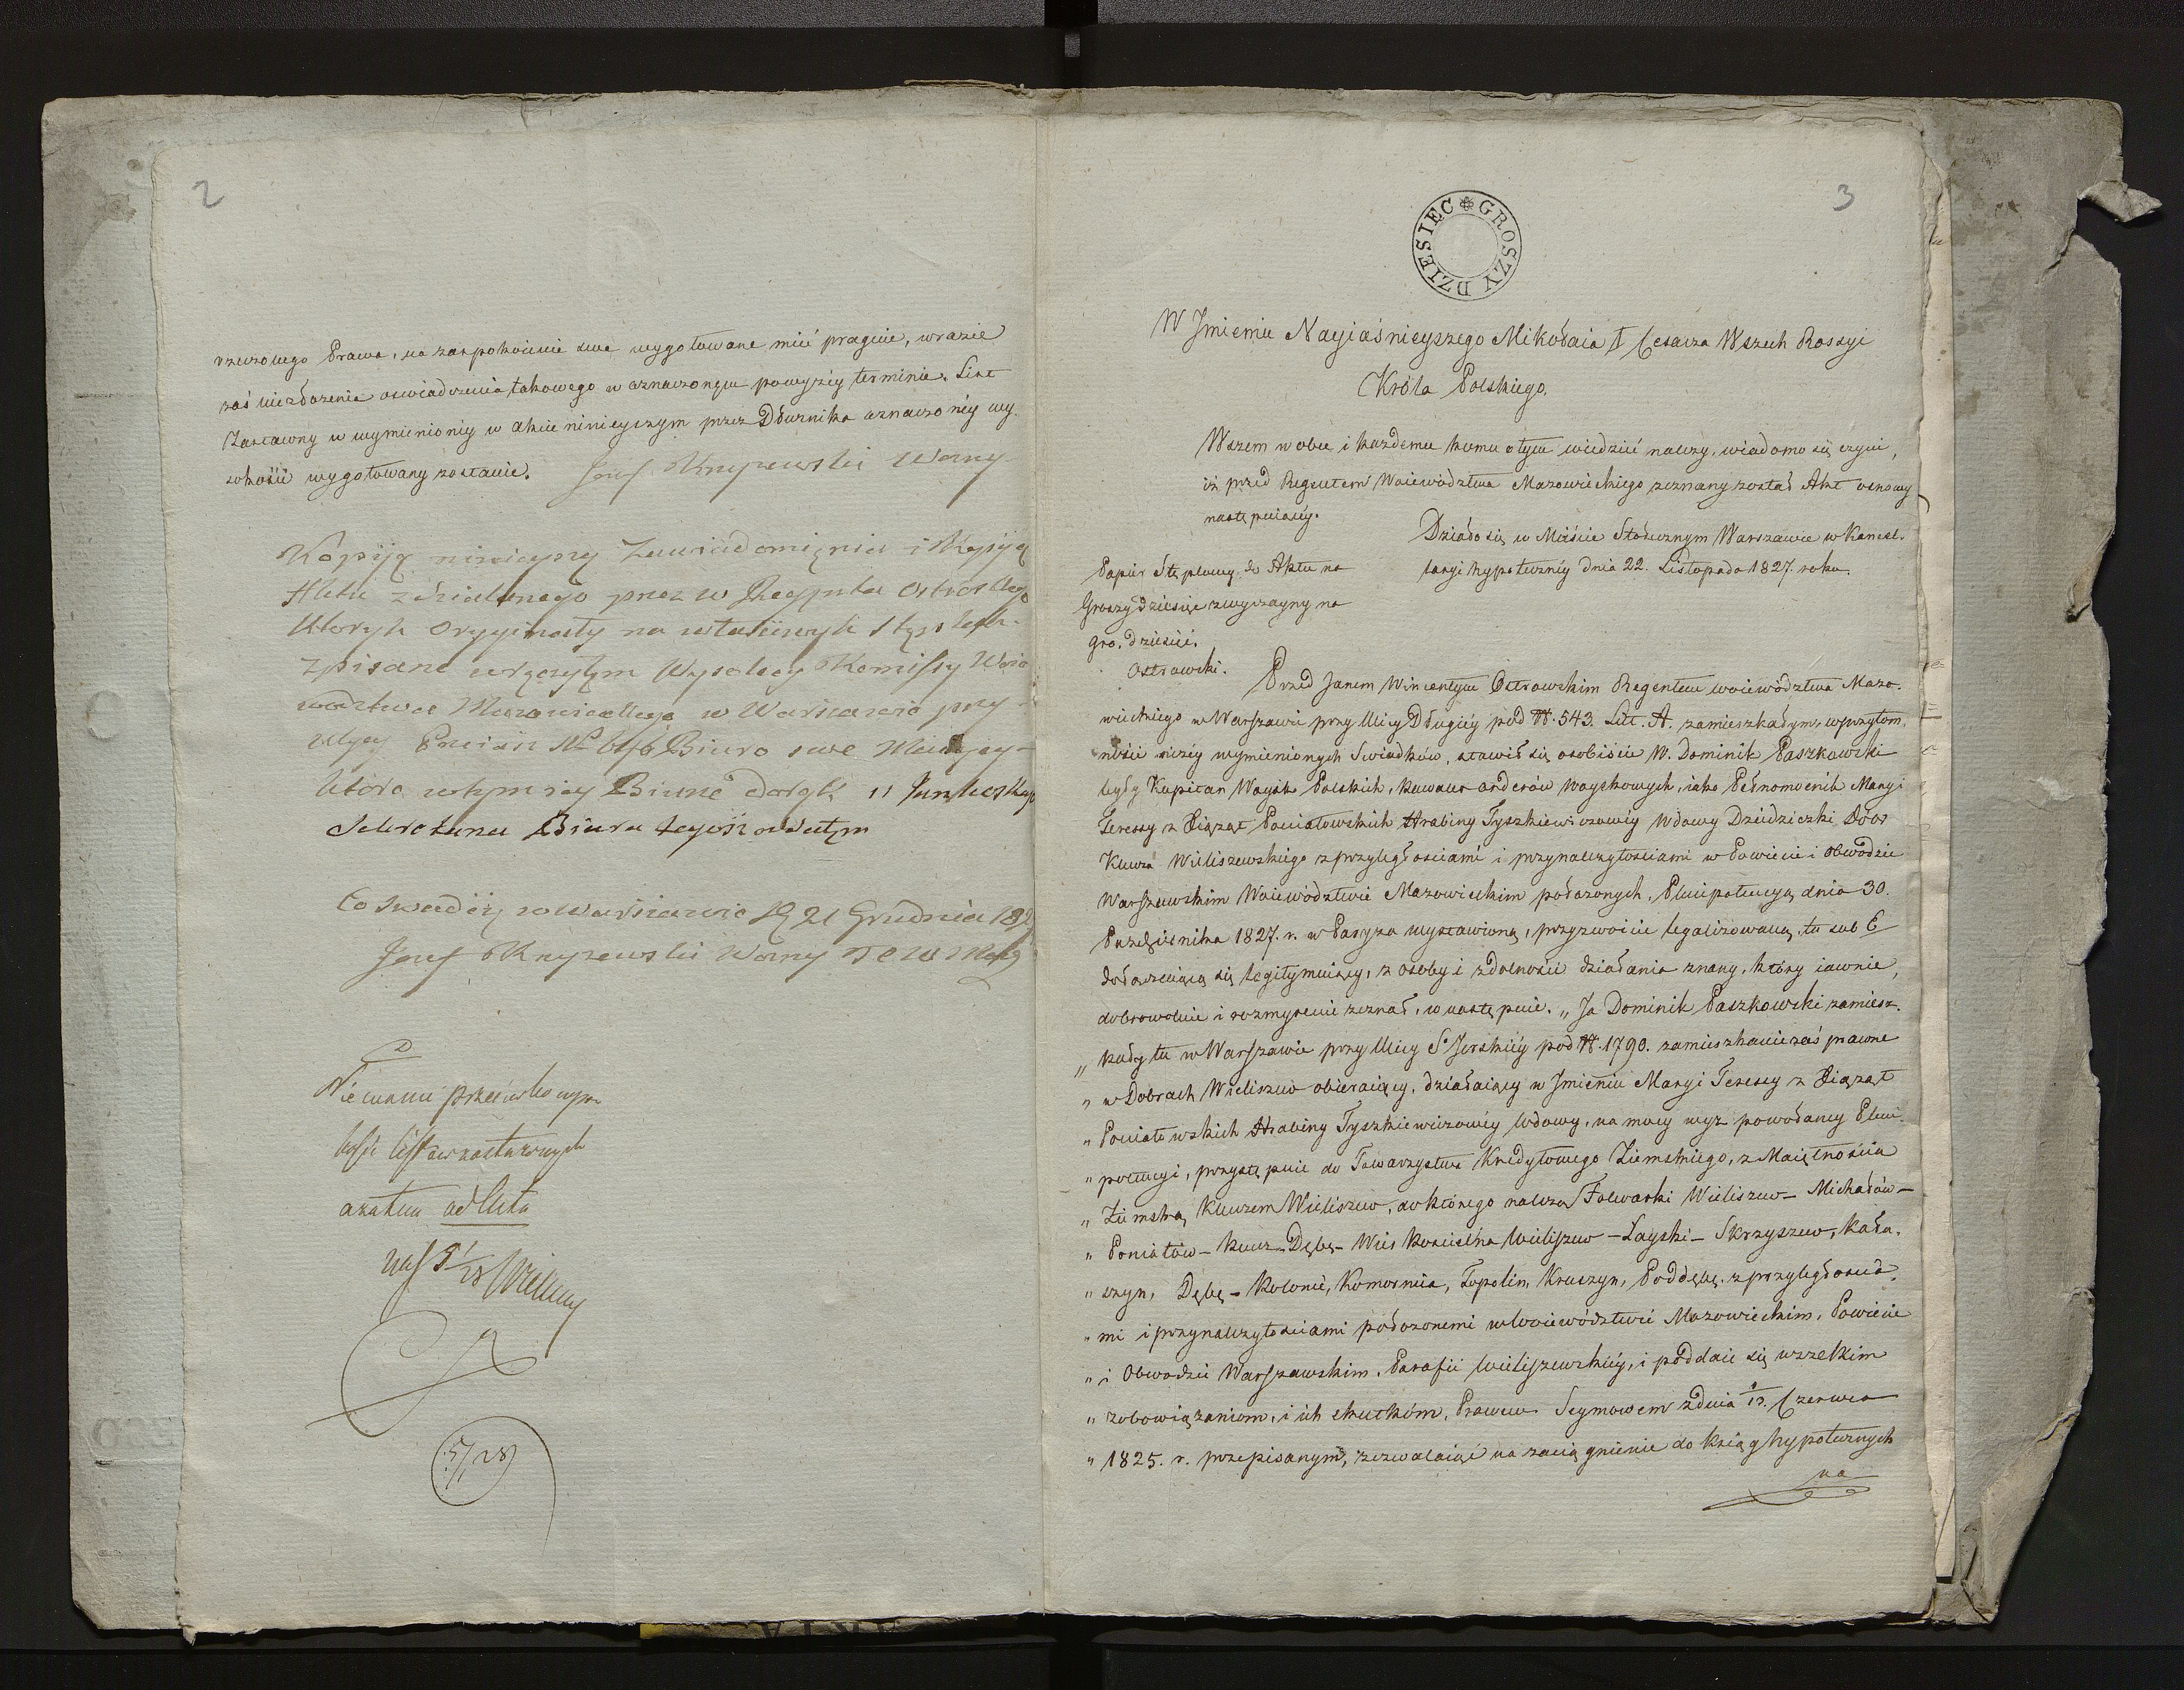 2
rzeczonego Prawa, na zaspokoienie swe wygotowane mieć pragnie, w razie
zaś niezłożenia oświadczenia takowego w oznaczonym powyżéy terminie. List
Zastawny w wymienionéy w akcie ninieyszym przez Dłużnika oznaczonéy wy,
sokości wygotowany zostanie. Józef Krzyżewski Wozny
Kopiją niniejszy Zawiadomięnia i Kopiją
Aktu zdziałanego przez w Regenta Ostrowskiego
których oryginały na właściwych stęplach
spisane wręczyłem Wysokiey Komissy Woie
wodztwa Mazowieckiego w Warszawie przy
ulicy Biuro swe
która w tym iey Biurze
Sekretarza Biura
Co swiadczę w Warszawie D 21 Grudnia 182
Józef Krzyżewski Wozny T C W Maz
Nie masz przeciwko wyda
listów zastawnych
a zatem ad Acta
5/1 28
5/1 28
3
DZIESIĘC GROSZY
W Jmieniu Nayiaśnieyszego Mikołaia I Cesarza Wszech Rossyi
Króla Polskiego.
Wszem w obec i każdemu komu o tym wiedzieć należy, wiadomo się czyni,
iż przed Regentem Woiewództwa Mazowieckiego zeznany został Akt osnowy
następuiącéy.
Działo się w Mieście Stołecznym Warszawie w Kancel,
laryi hypoteczney dnia 22. Listopada 1827. roku.
Papier Stęplowy do Aktu na
Groszy dziesięć zwyczayny na
gro. dziesięć.
Ostrowski.
Przed Janem Wincentym Ostrowskim Regentem woiewództwa Mazo,
wieckiego w Warszawie przy Ulicy Długiéy pod N. 543. Litt. A. zamieszkałym, w przytom,
ności niżéy wymienionych Swiadków, stawił się osobiście W. Dominik Paszkowski
były Kapitan Woysk Polskich, kawaler orderów woyskowych, iako Pełnomocnik Maryi
Teressy z Xiążąt Poniatowskich Hrabiny Tyszkiewiczowéy Wdowy Dziedziczki Dóbr
Klucza Wieliszewskiego z przyległościami i przynależytościami w Powiecie i Obwodzie
Warszawskim Woiewództwie Mazowieckim położonych, Plenipotencyą dnia 30.
Pazdziernika 1827. r. w Paryżu wystawioną, przyzwoicie legalizowaną, tu sub C
dołączaiącą się legitymuiący, z osoby i zdolności działania znany, który iawnie,
dobrowolnie i rozmyślnie zeznał, co następuie. „ Ja Dominik Paszkowski zamiesz,
„ kały tu w Warszawie przy Ulicy S. Jerskiéy pod N. 1790. zamieszkanie zaś prawne
„ w Dobrach Wieliszew obieraiący, działaiący w Jmieniu Maryi Teressy z Xiążąt
„ Poniatowskich Hrabiny Tyszkiewiczowéy Wdowy, na mocy wyż powołaney Pleni
„ potencyi, przystępuie do Towarzystwa Kredytowego Ziemskiego, z Maiętnością
„ Ziemską, Kluczem Wieliszew, do którego należą Folwarki Wieliszew – Michałów –
„ Poniatów – Dębe – Wieś Kościelna Wieliszew – Łayski – Skrzyszew, Kału,
„ szyn, Dębe – Kolonie, Komornica, Topolin, Kruszyn, Poddębe, z przyległościa,
„ mi i przynależytościami położonemi w Woiewództwie Mazowieckim, Powiecie
„ i Obwodzie Warszawskim, Parafii Wieliszewskiéy, i poddaie się wszelkim
„ zobowiązaniom, i ich skutkóm, Prawem Seymowem z dnia 1/13. Czerwca
„ 1825. r. przepisanym, zezwalaiąc na zaciągnienie do ksiąg hypotecznych
na